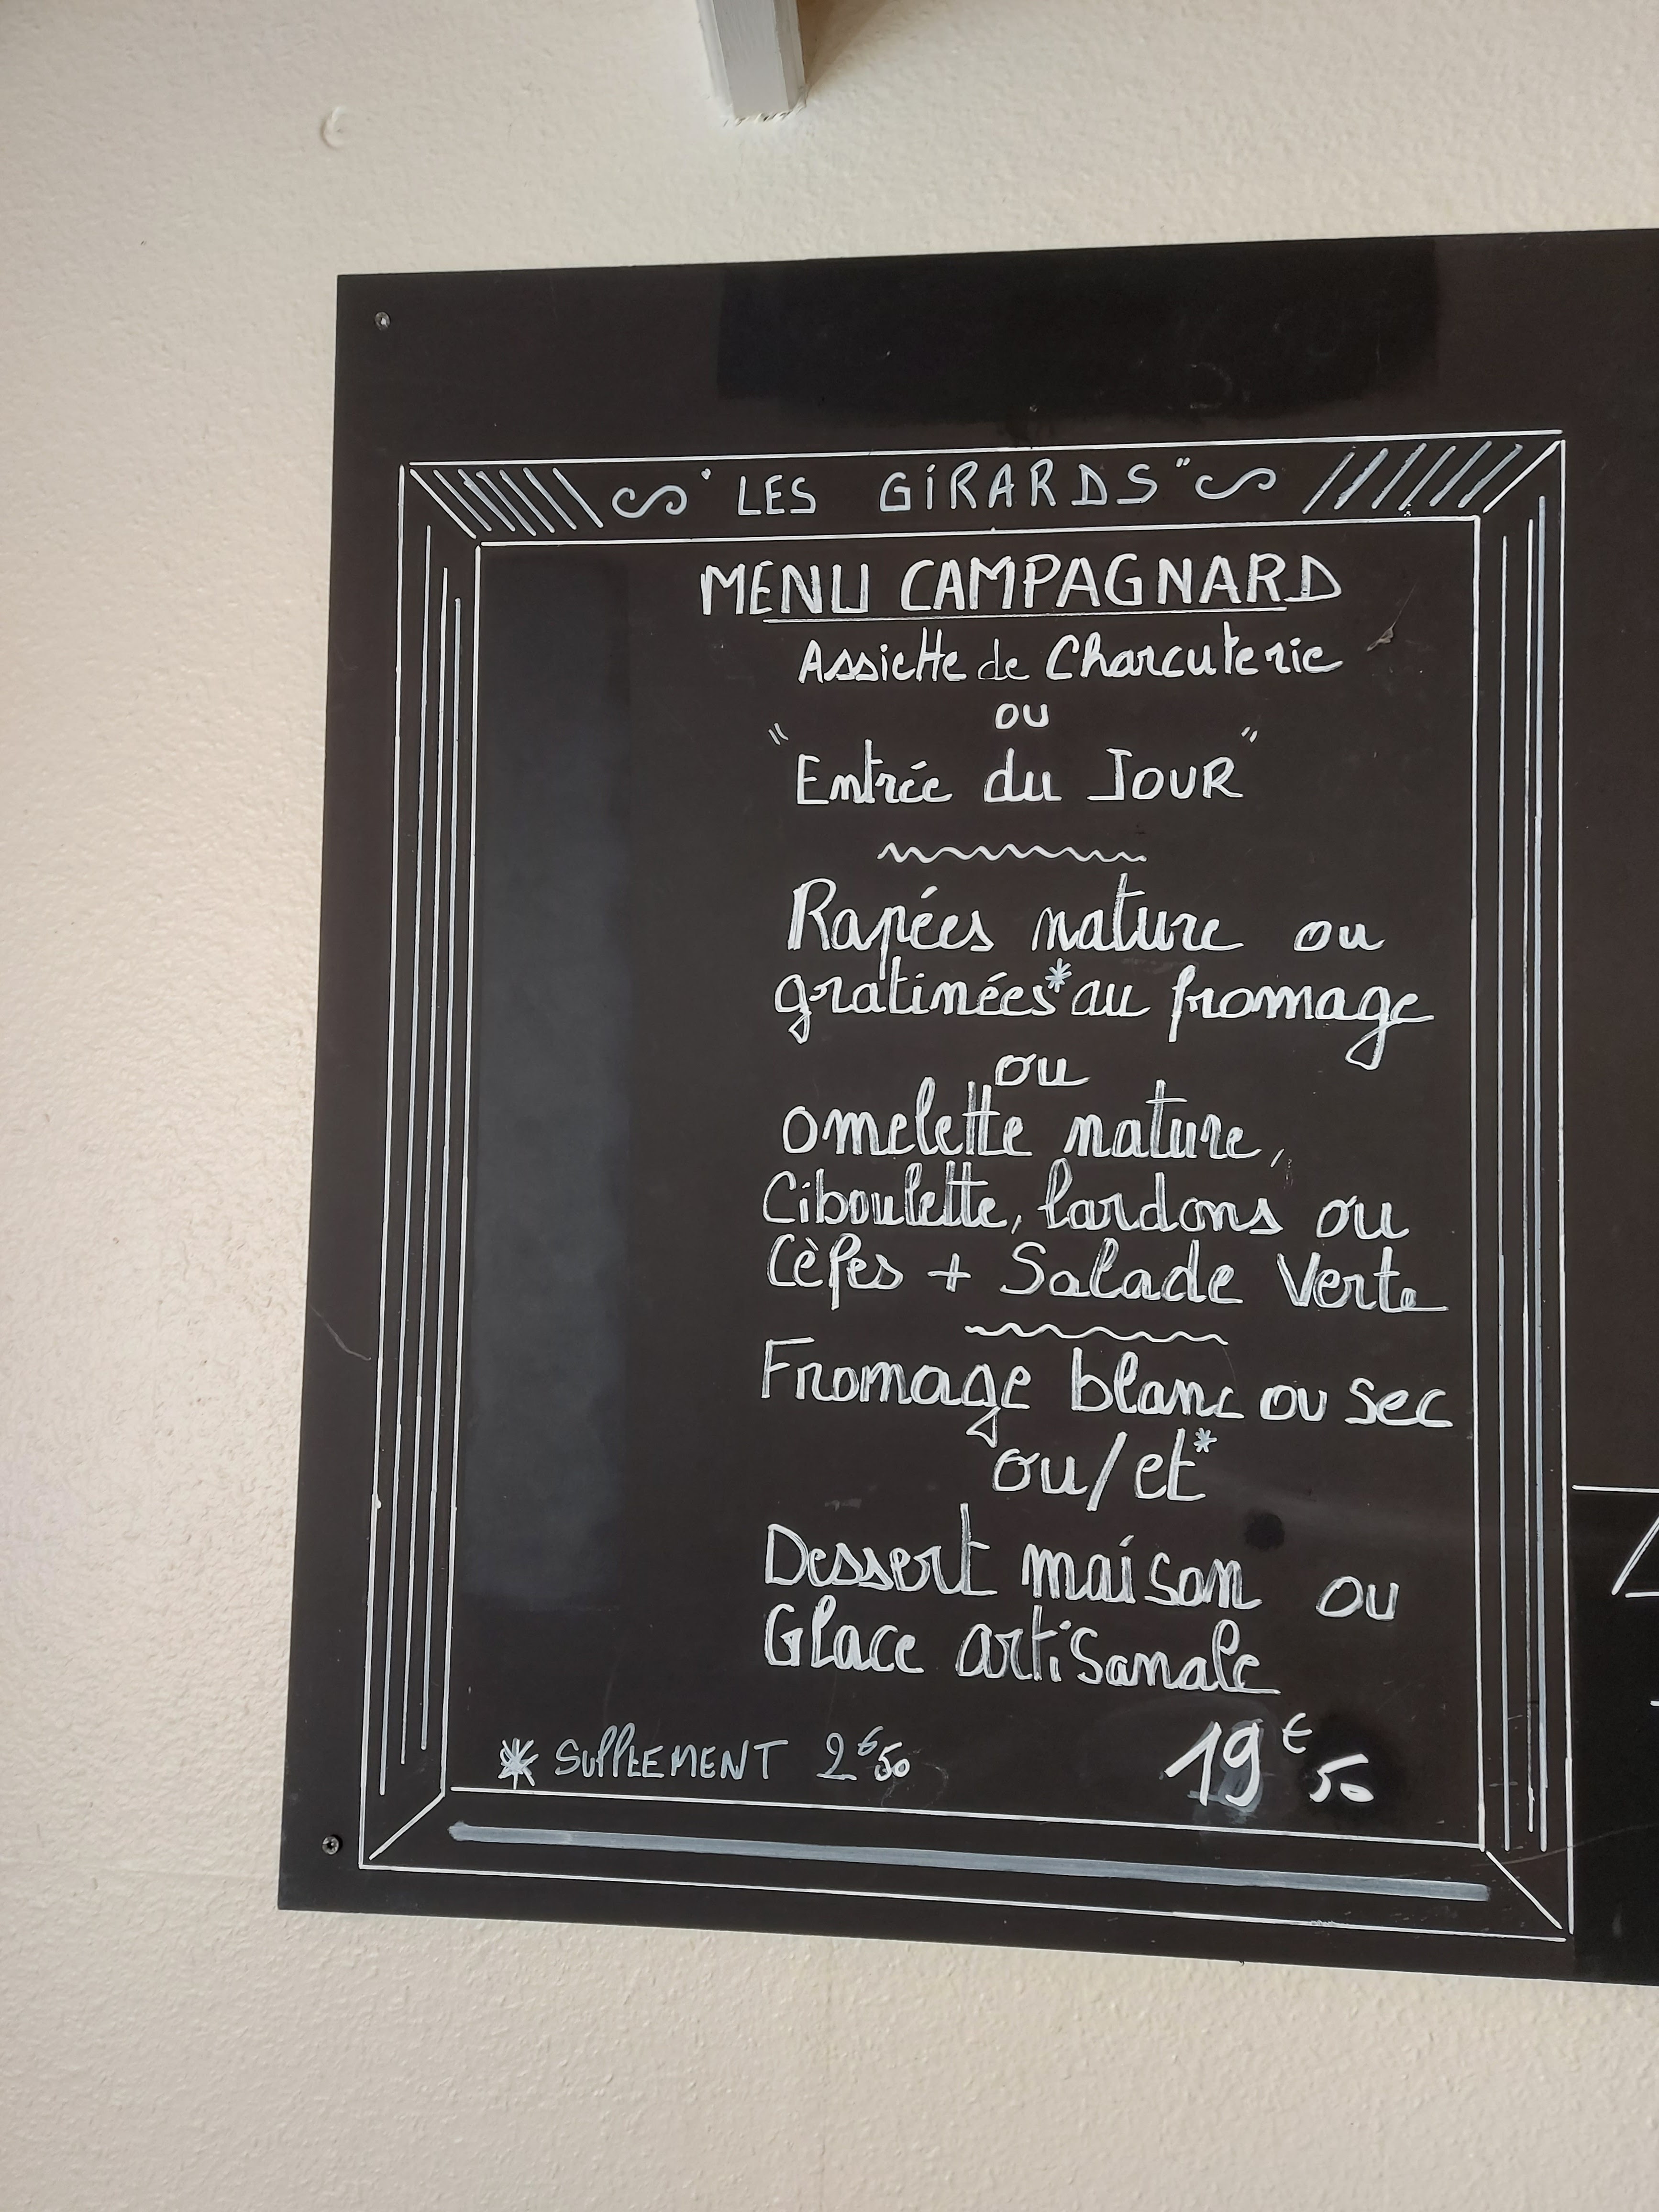 "LES GiRARDS"
MENU CAMPAGNARD
Assiette de Charcuterie
ou
"Entrée du JOUR"
Rapées nature ou
gratinées* au fromage
ou
omelette nature,
Ciboulette, lardons ou
Cèpes + Salade Verte
Fromage blanc ou sec
ou/et*
Dessert maison ou
Glace artisanale
* SUPPLEMENT 2€50
19€50